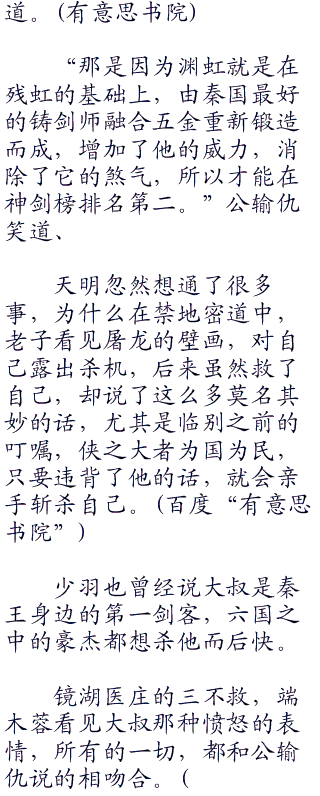 道。(有意思书院)
“那是因为渊虹就是在
残虹的基础上，由秦国最好
的铸剑师融合五金重新锻造
而成，增加了他的威力，消
除了它的煞气，所以才能在
神剑榜排名第二。”公输仇
笑道、
天明忽然想通了很多
事，为什么在禁地密道中，
老子看见屠龙的壁画，对自
己露出杀机，后来虽然救了
自己，却说了这么多莫名其
妙的话，尤其是临别之前的
叮嘱，侠之大者为国为民，
只要违背了他的话，就会亲
手斩杀自己。(百度“有意思
书院”)
少羽也曾经说大叔是秦
王身边的第一剑客，六国之
中的豪杰都想杀他而后快。
镜湖医庄的三不救，端
木蓉看见大叔那种愤怒的表
情，所有的一切，都和公输
仇说的相吻合。(